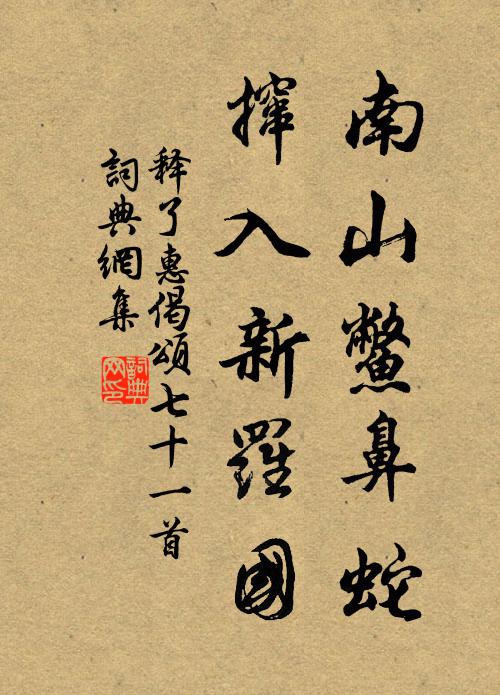 南山鱉鼻蛇
撺入新羅國
释了惠偈頌七十一首
詞典網集
詞典
网印